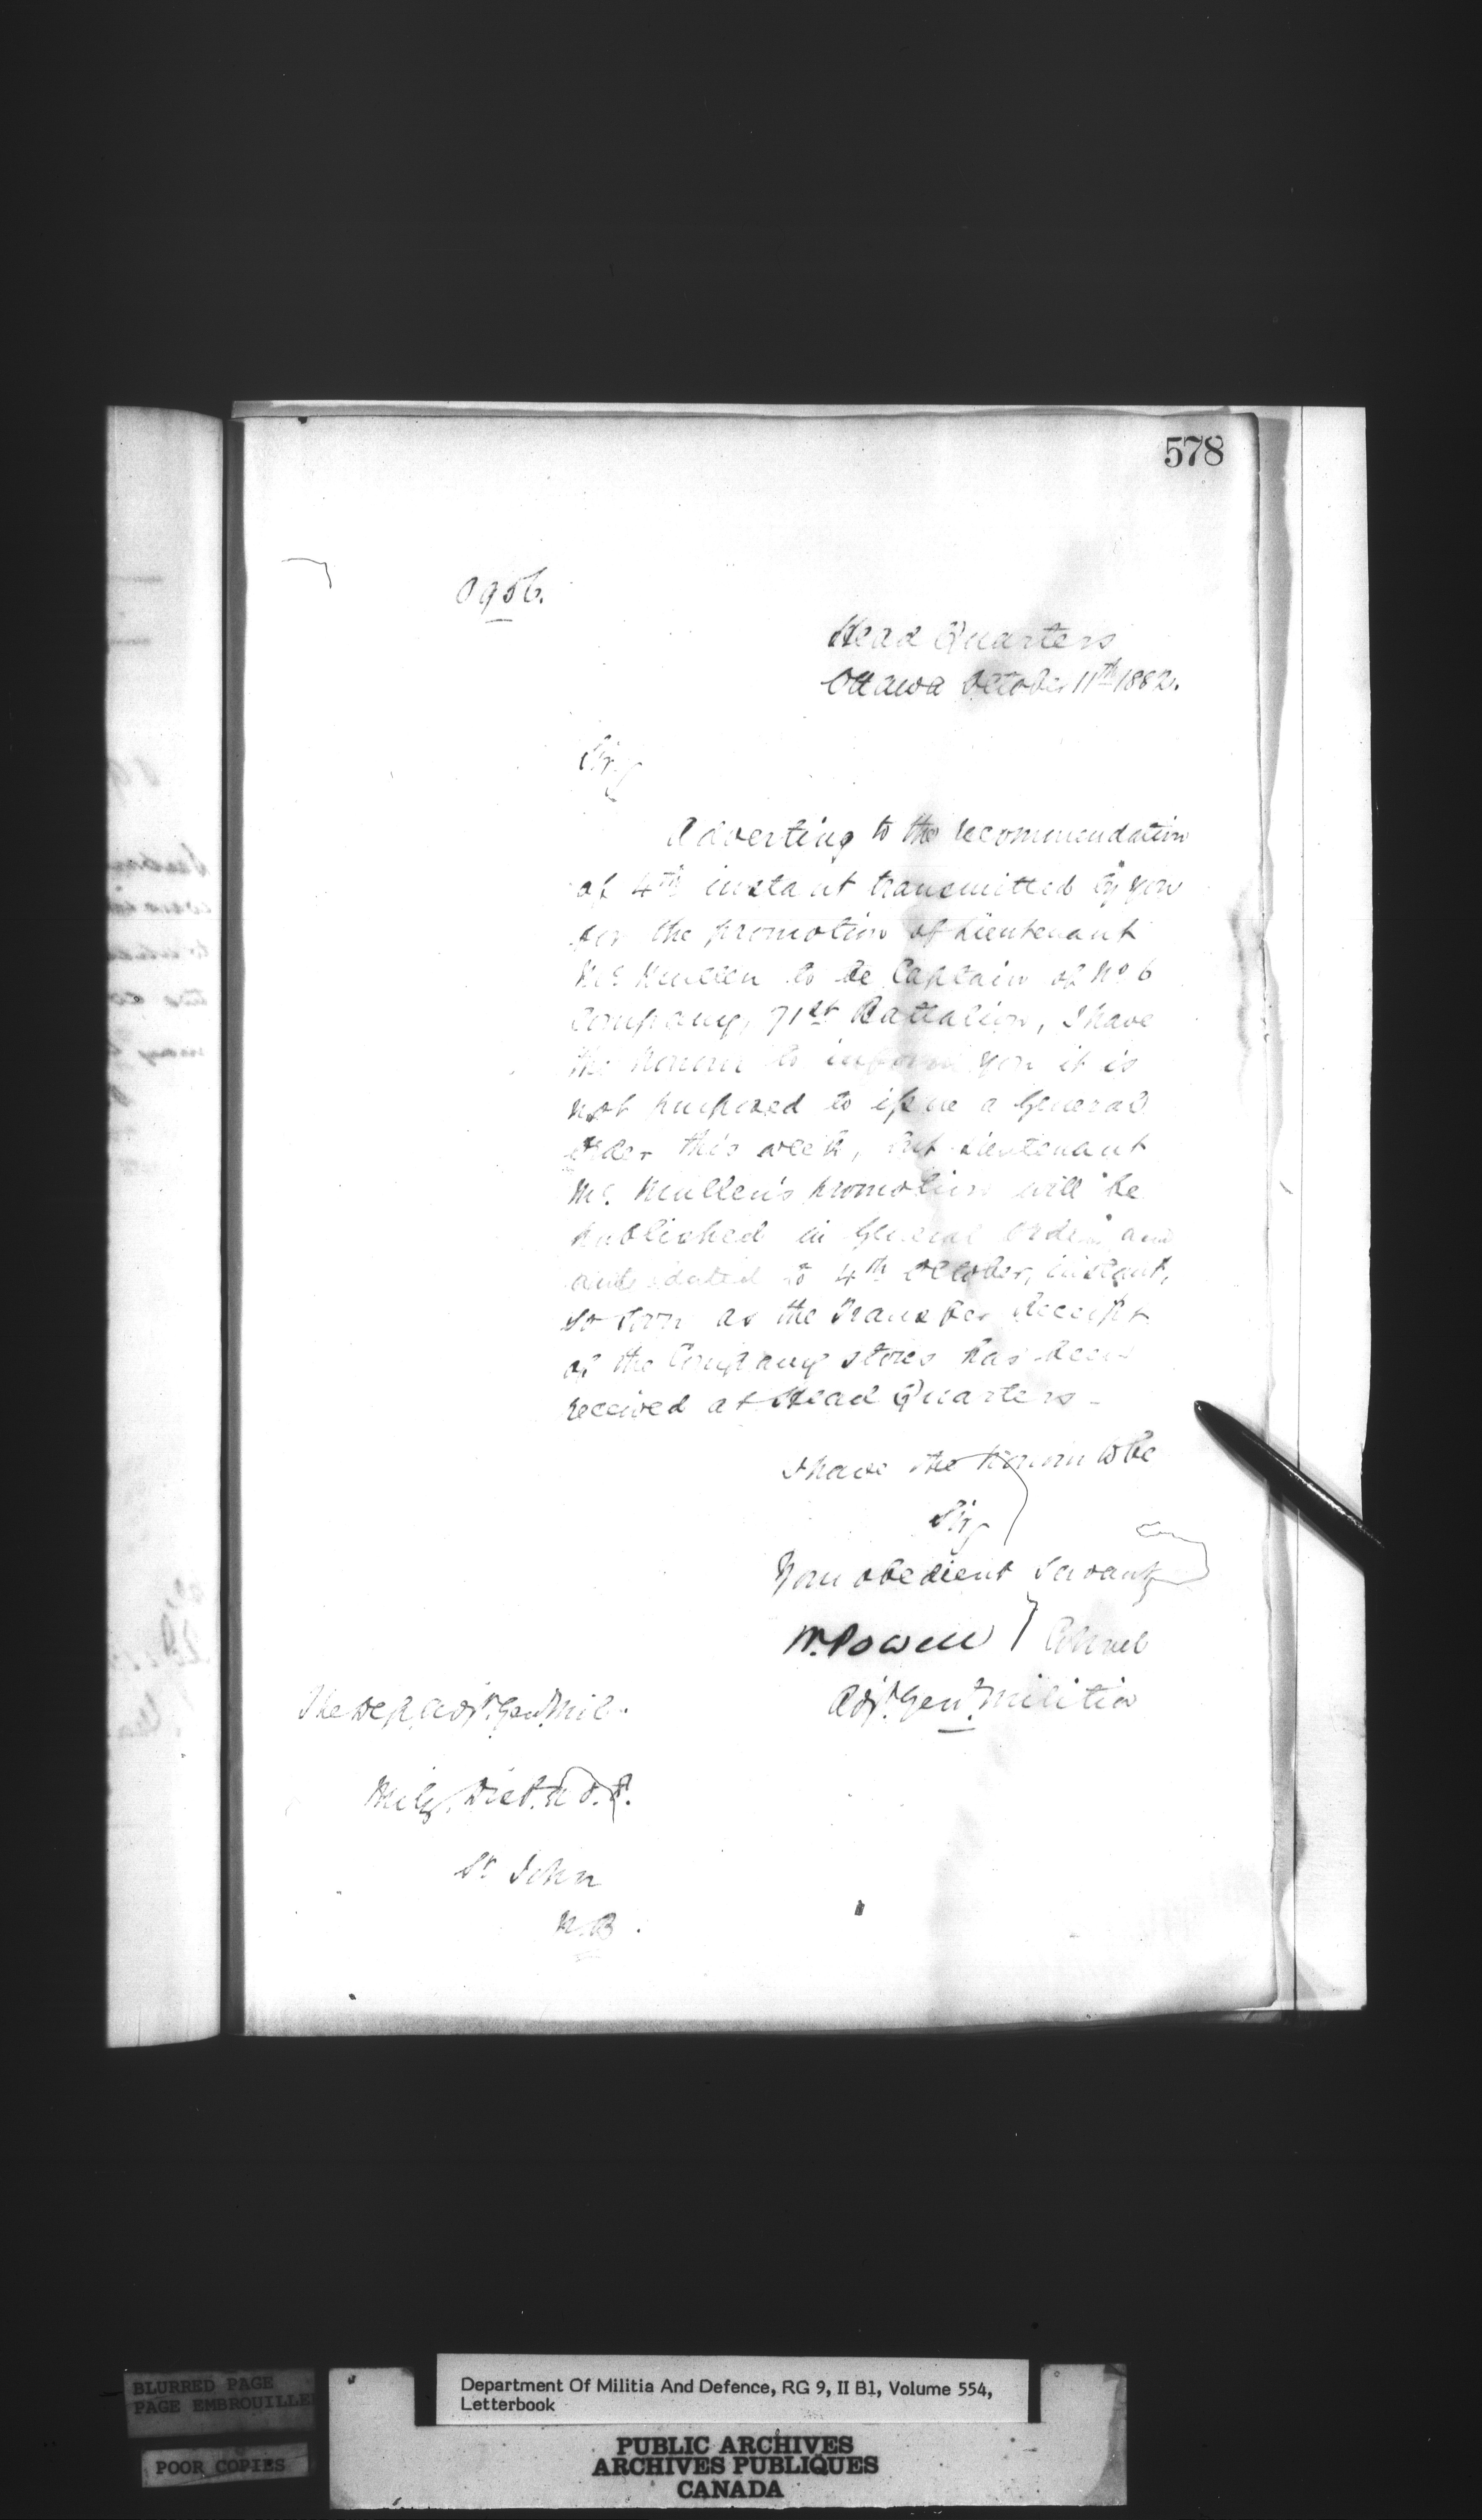 578
0956.
Head Quarters
Ottawa October 11th 1882.
Sir,
Adverting to the recommendation
of 4th instant transmitted by you
for the promotion of Lieutenant
Mc Mullen to be Captain of No 6
Company, 71st Battalion, I have
the honour to inform you it is
not purposed to issue a General
Order this week, but Lieutenant
Mc. Mullen's promotion will be
published in General Orders and
ante dated to 4th October, instant,
so soon as the Transfer Receipt
of the Company stores has been
received at Head Quarters -
I have the honour to be
Sir,
Your obedient Servant,
W. Powell Colonel
Adjt. Genl. Militia
The Dep. Adjt. Genl. Mil.
Mily. Dist. No. 8.
St John
N.B.
BLURRED PAGE
PAGE EMBROUILLE
POOR COPIES
Department Of Militia And Defence, RG 9, II B1, Volume 554,
Letterbook
PUBLIC ARCHIVES
ARCHIVES PUBLIQUES
CANADA